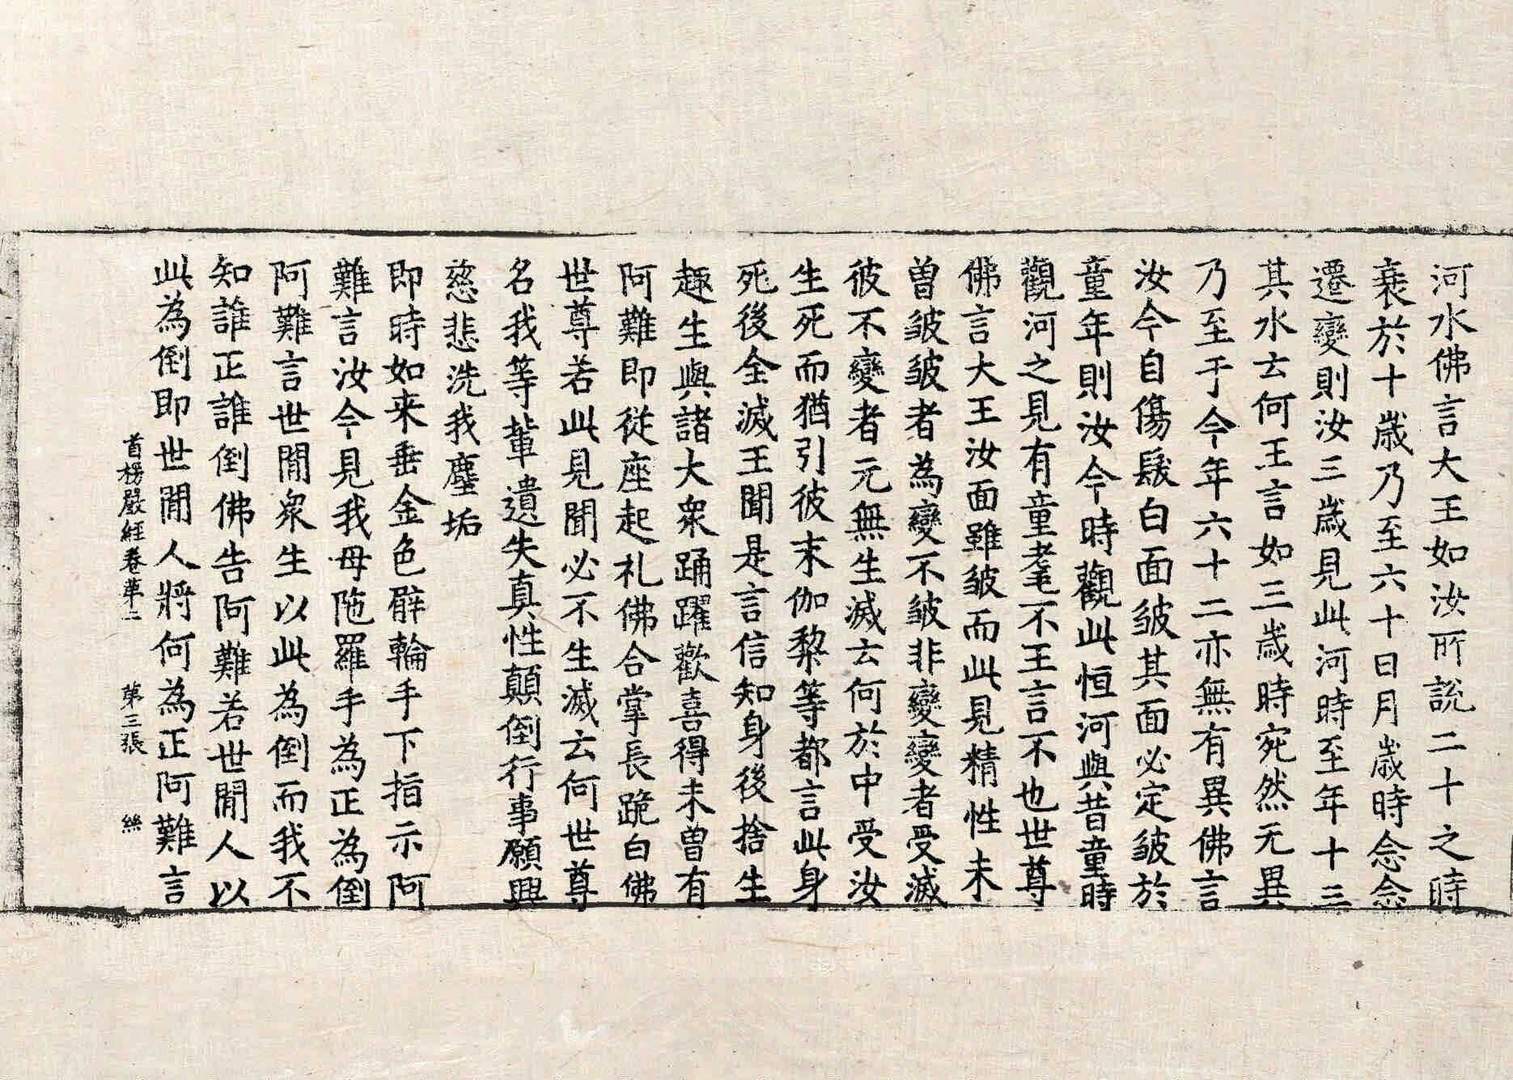 河水佛言大王如汝所說二十之時
衰於十歲乃至六十日月歲時念念
遷變則汝三歲見此河時至年十三
其水云何王言如三歲時宛然无異
乃至于今年六十二亦無有異佛言
汝今自傷髮白面皺其面必定皺於
童年則汝今時觀此恒河與昔童時
觀河之見有童耄不王言不也世尊
佛言大王汝面雖皺而此見精性未
曾皺皺者為變不皺非變變者受滅
彼不變者元無生滅云何於中受汝
生死而猶引彼末伽黎等都言此身
死後全滅王聞是言信知身後捨生
趣生與諸大衆踊躍歡喜得未曾有
阿難即從座起礼佛合掌長跪白佛
世尊若此見聞必不生滅云何世尊
名我等輩遺失真性顛倒行事願興
慈悲洗我塵垢
即時如来垂金色臂輪手下指示阿
難言汝今見我母陁羅手為正為倒
阿難言世閒衆生以此為倒而我不
知誰正誰倒佛告阿難若世閒人以
此為倒即世閒人將何為正阿難言
首楞嚴経卷苐二 苐三張 絲